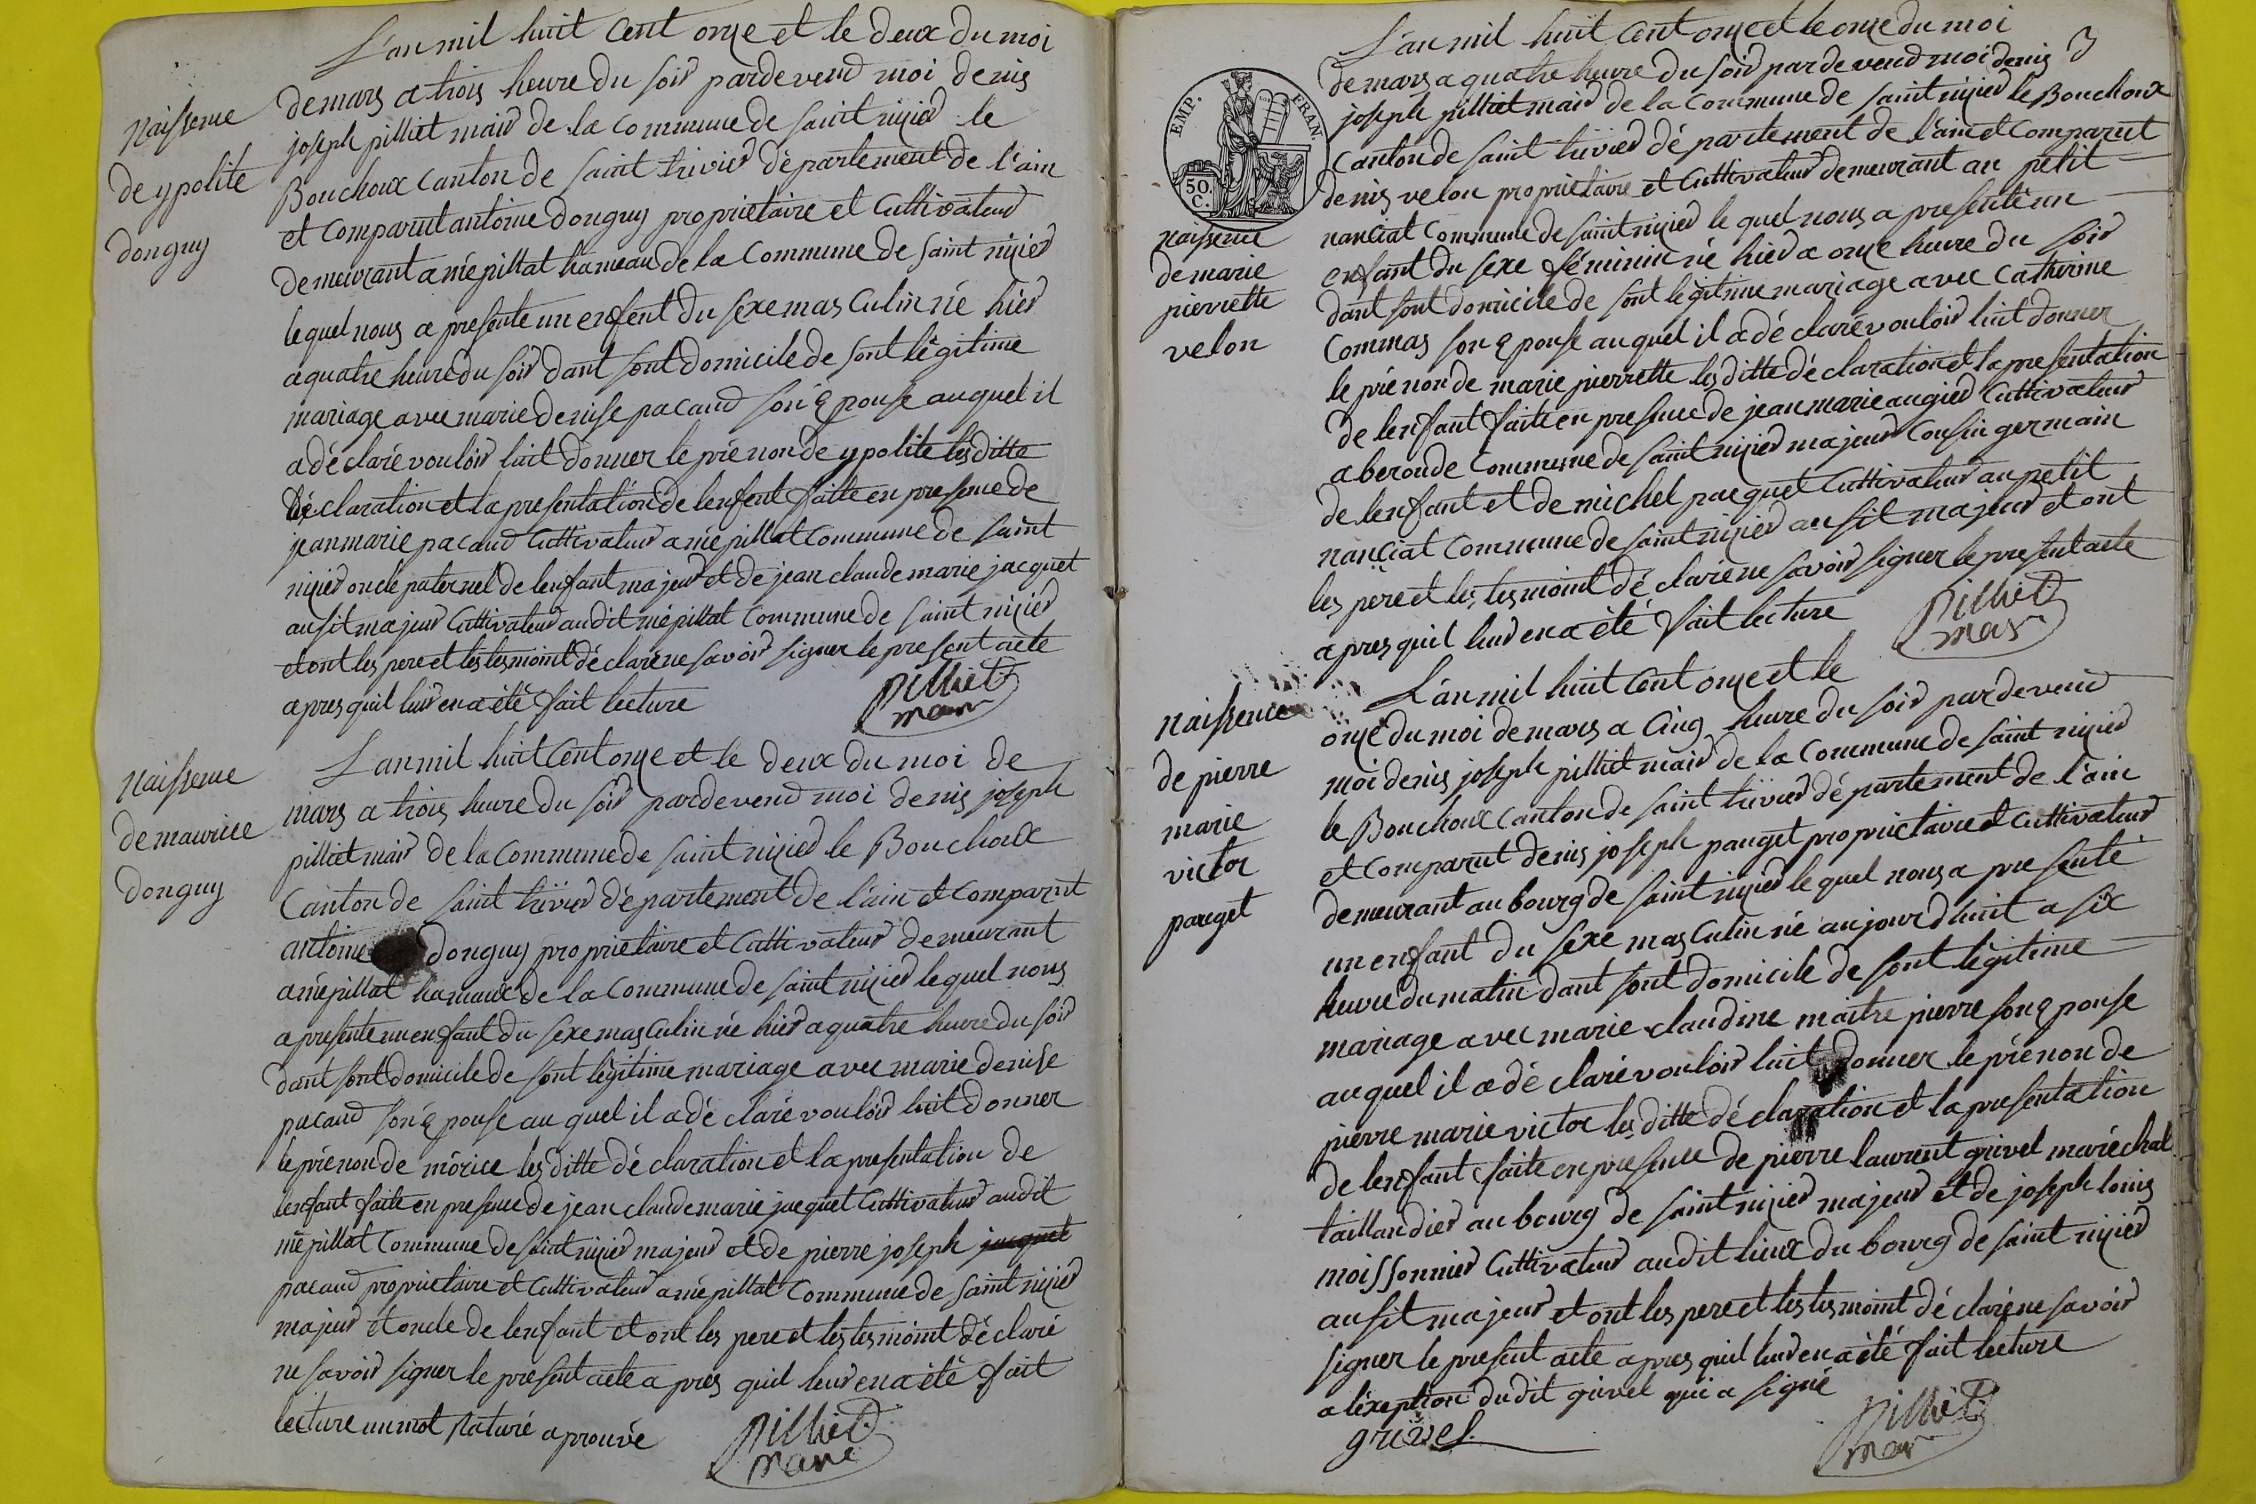 L'an mil huit Cent onze et le deux du moi
de mars a trois heure du soir pardevend moi denis
joseph pilliet mair de la Commune de saint nizier le
Bouchoux Canton de saint trivier département de l'ain
et Comparut antoine donguy propriétaire et Cultivateur
demeurant a mépillat hameau de la Commune de Saint nizier
lequel nous a presente un enfent du sexe masculin né hier
a quatre heure du soir dant sont domicile de sont légitime
mariage avec marie denise pacaud son épouse auquel il
a déclaré vouloir luit donner le prénon de ypolite les ditte
déclaration et la presentation de lenfent faitte en presense de
jean marie pacaud Cultivateur a mépillat Commune de saint
nizier oncle paternel de lenfant majeur et de jean claude marie jacquet
ausit majeur Cultivateur audit mépillat Commune de saint nizier
et ont les pere et les tesmoint déclaré ne savoir signer le present acte
apres quil leur en a été fait lecture
pilliet
mair
Naissense
de ypolite
donguy
L'an mil huit Cent onze et le deux du moi de
mars a trois heure du soir pardevend moi denis joseph
pilliet mair de la Commune de saint nizier le Bouchoux
Canton de saint trivier département de l'ain et Comparut
antoine donguy propriétaire et Cultivateur demeurant
a mépillat hamaux de la Commune de saint nizier lequel nous
a presente un enfant du sexe masculin né hier a quatre heure du soir
dant sont domicile de sont légitime mariage avec marie denise
pacaud son épouse au quel il a déclaré vouloir luit donner
le prénon de mórice les ditte déclaration et la presentation de
lenfant faite en presense de jean claude marie jacquet Cultivateur audit
mépillat Commune de saint nizier majeur et de pierre joseph jacquet
pacaud propriétaire et Cultivateur a mépillat Commune de saint nizier
majeur et oncle de lenfant et ont les pere et les tesmoint déclaré
ne savoir signer le present acte apres quil leur en a été fait
lecture un mot raturé aprouvé
pilliet
maire
Naissense
de maurice
donguy
3
L'an mil huit Cent onze et le onze du moi
de mars a quatre heure du soir pardevend moi denis
joseph pilliet mair de la Commune de saint nizier le Bouchoux
Canton de saint trivier département de l'ain et Comparut
denis velon propriétaire et Cultivateur demeurant au petit
nanciat Commune de saint nizier le quel nous a presenté un
enfant du sexe féminin né hier a onze heure du soir
dant sont domicile de sont légitime mariage avec Catherine
Commas son épouse auquel il a déclaré vouloir luit donner
le prénon de marie pierrette les ditte déclaration et la presentation
de lenfant faite en presense de jean marie augier Cultivateur
a beroude Commune de saint nizier majeur Cousin germain
de lenfant et de michel pacquet Cultivateur au petit
nanciat Commune de saint nizier ausit majeur et ont
les pere et les tesmoint déclaré ne savoir signer le present acte
apres quil leur en a été fait lecture
pilliet
mair
EMP. FRAN.
50.
C.
Naissense
de marie
pierrette
velon
L'an mil huit Cent onze et le
onze du moi de mars a Cinq heure du soir pardevend
moi denis joseph pilliet mair de la Commune de saint nizier
le Bouchoux Canton de saint trivier département de l'ain
et Comparut denis joseph pauget propriétaire et Cultivateur
demeurant au bourg de saint nizier lequel nous a presenté
un enfant du sexe masculin né aujourdhuit a six
heure du matin dant sont domicile de sont légitime
mariage avec marie claudine maitre pierre son épouse
auquel il a déclaré vouloir luit donner le prénon de
pierre marie victor les ditte déclaration et la presentation
de lenfant faite en presense de pierre laurent grivel maréchal
taillandier au bourg de saint nizier majeur et de joseph louis
moissonnier Cultivateur audit lieux du bourg de saint nizier
ausit majeur et ont les pere et les tesmoint déclaré ne savoir
signer le present acte apres quil leur en a été fait lecture
a lexeption dudit grivel qui a signé
grivel
pilliet
mair
Naissence
de pierre
marie
victor
pauget